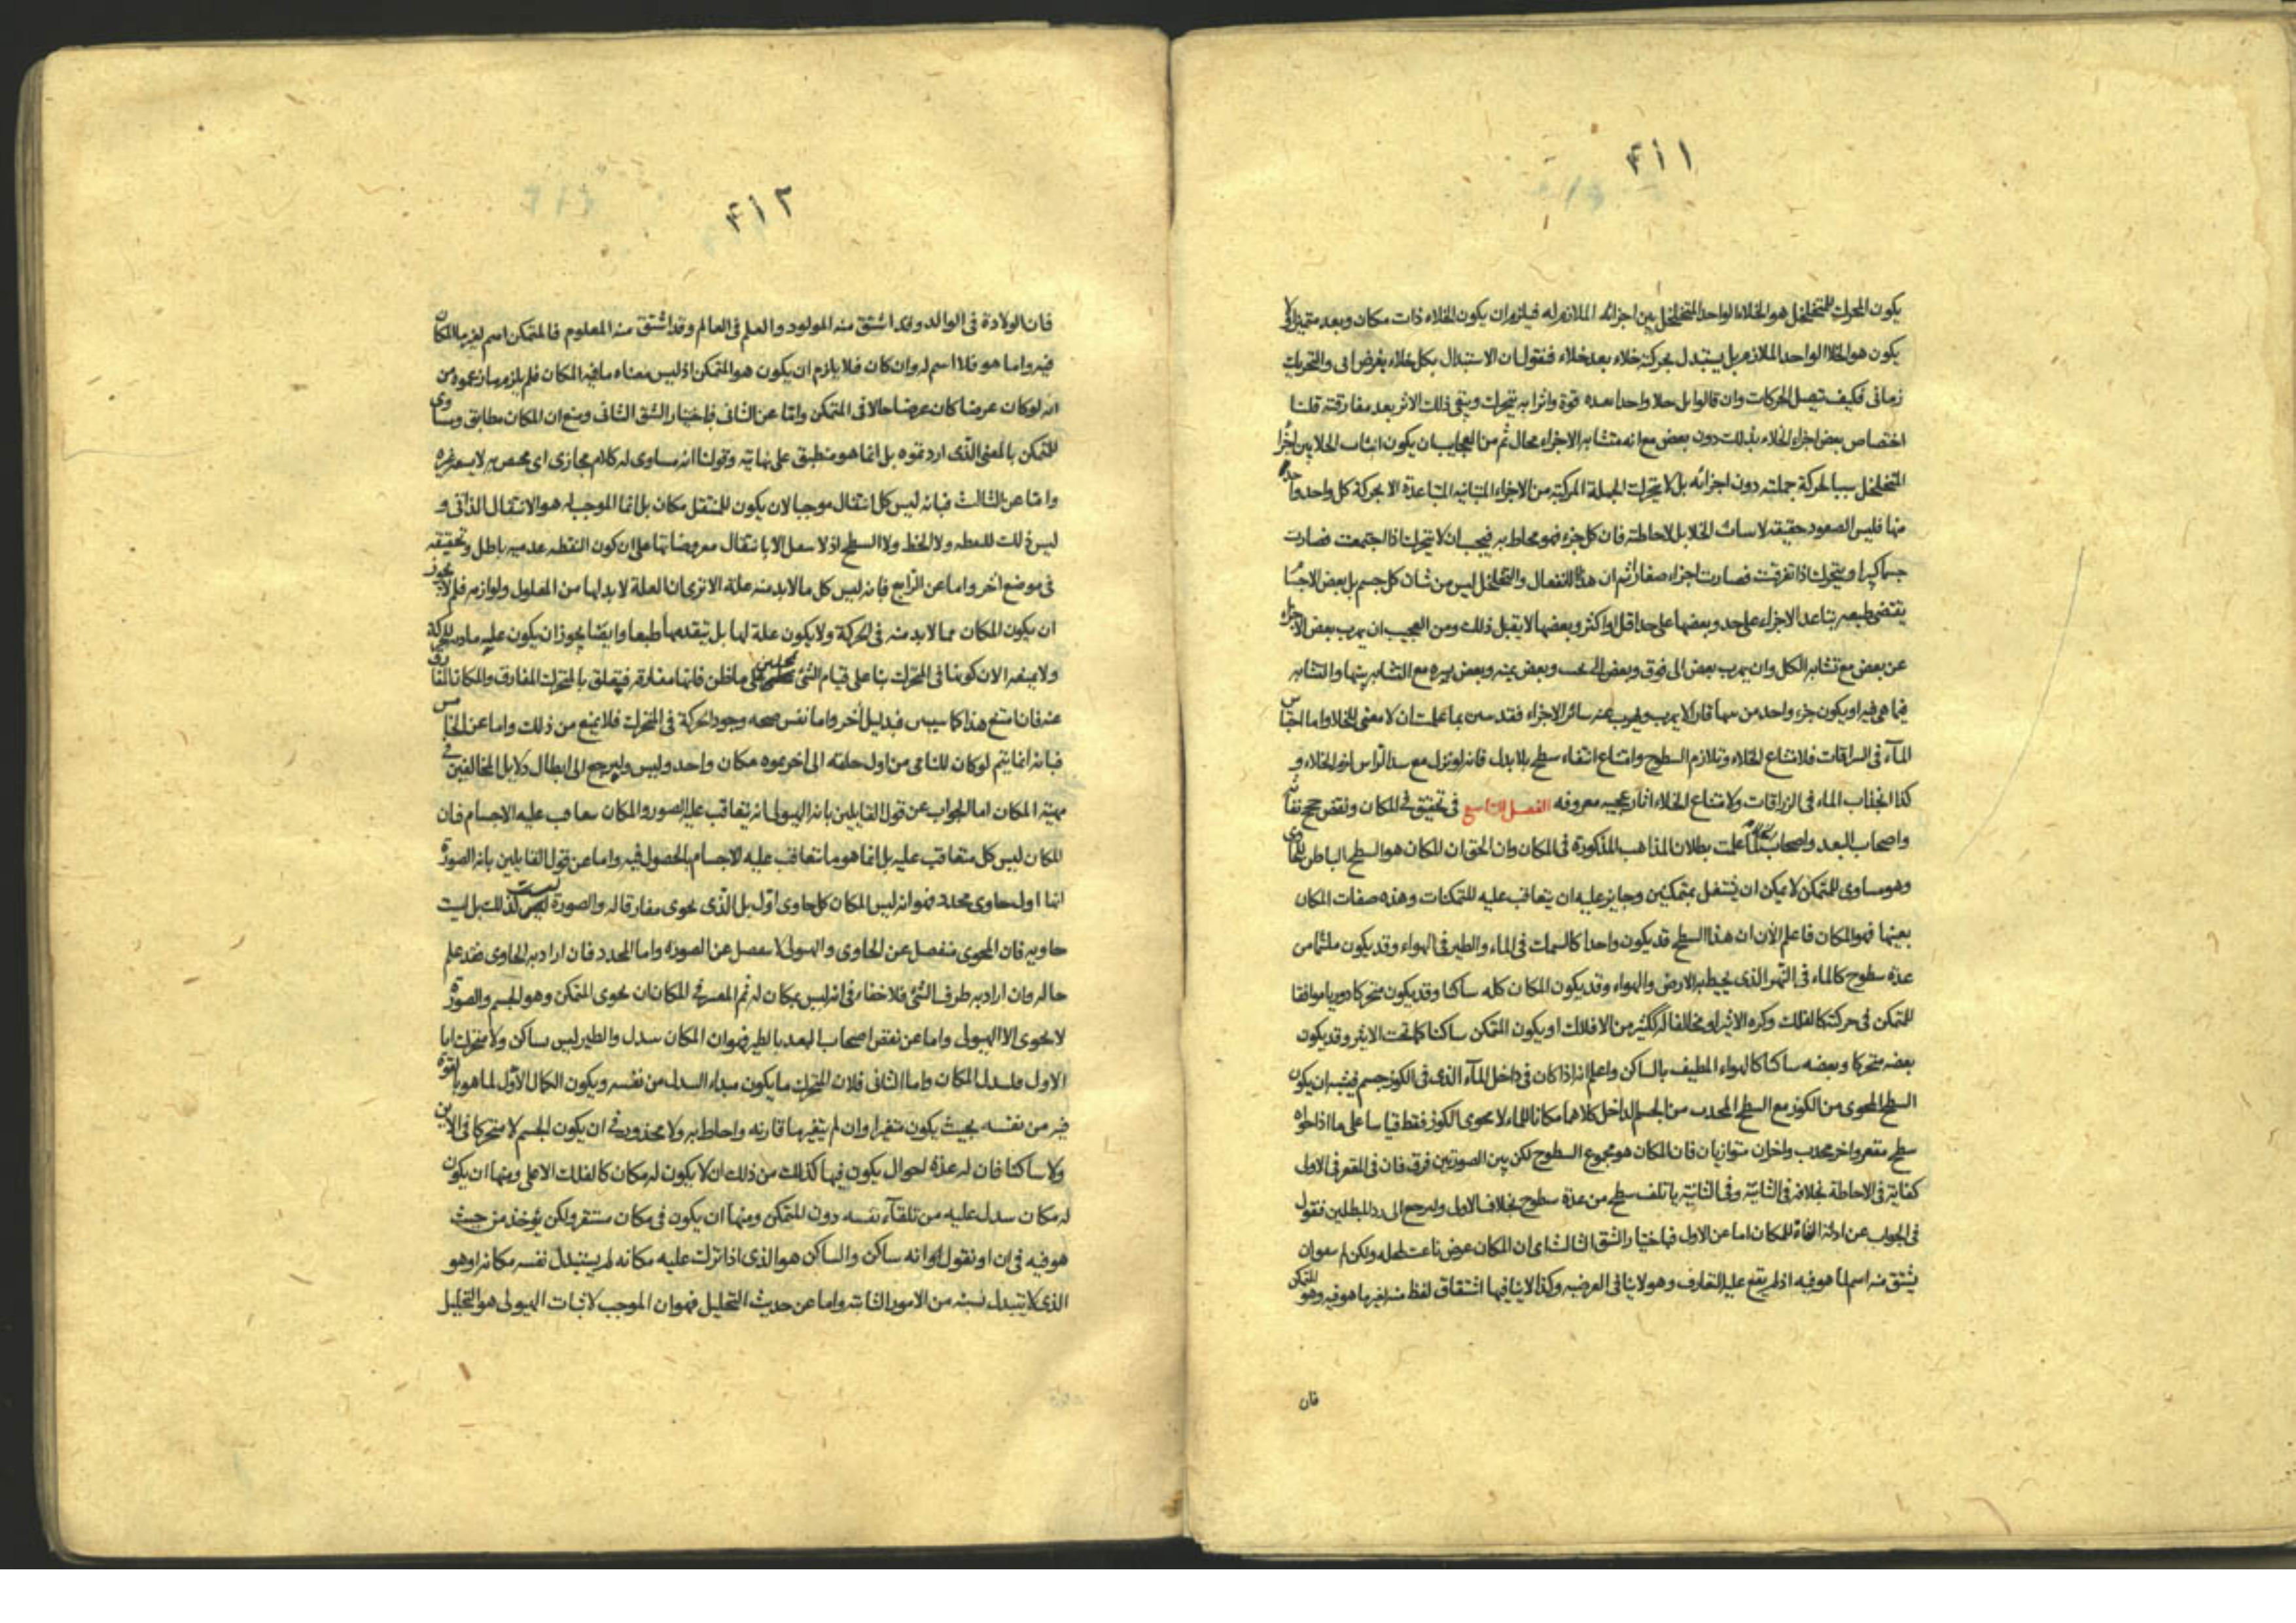 ۴۱۱
يكون المحرك للمتخلخل هو الخلاء الواحد المتخلخل بين اجزائه الملازم له فيلزم ان يكون الخلاء ذات مكان وبعد متميز او لا
يكون هو الخلا الواحد الملازم بل يستبدل بحركته خلاء بعد خلاء فنقول ان الاستبدال بكل خلاء يفرض انى والتحريك
زمانى فكيف تتصل الحركات وان قالوا بل خلا واحدا بعده قوة واثرا به يتحرك ويبقى ذلك الاثر بعد مفارقته قلنا
اختصاص بعض اجزاء الخلاء بذلك دون بعض مع انه متشابه الاجزاء محال ثم من العجايب ان يكون انبثاث الخلا بين اجزا
المتخلخل سببا لحركة جملته دون اجزائه بل لا يتحرك الجملة المركبة من الاجزاء المتباينه المتباعدة الا بحركة كل واحد واحد
منها فليس الصعود حقيقه لانبثاث الخلا بل لاحاطته فان كل جزء فهو محاط به فيجب ان لا يتحرك اذا اجتمعت فصارت
جسما كبيرا ويتحرك اذا تفرقت فصارت اجزاء صغارا ثم ان هذا الانفعال والتخلخل ليس من شان كل جسم بل بعض الاجسا
يقتضى طبيعه تباعد الاجزاء على حد وبعضها على حد اقل او اكثر وبعضها لا يقبل ذلك ومن العجيب ان يهرب بعض الاجزاء
عن بعض مع تشابه الكل وان يهرب بعض الى فوق وبعض الى تحت وبعض يمنه وبعض يسره مع التشابه بينها والتشابه
فيما هى فيه او يكون جزء واحد من بينها قارا لا يهرب ويهرب عنه سائر الاجزاء فقد تبين بما علمت ان لا معنى للخلا واما احتباس
المآء فى السراقات فلامتناع الخلاء وتلازم السطوح وامتناع انتفاء سطح بلا بدل فانه لو نزل مع سد الراس لزم الخلاء و
كذا انجذاب الماء فى الزراقات ولامتناع الخلاء اثار عجيبه معروفه الفصل التاسع فى تحقيق المكان ونقض حجج نفاته
واصحاب البعد واصحاب لما علمت بطلان المذاهب المذكورة فى المكان وان الحق ان المكان هو السطح الباطن للحاوى
وهو مساوى للمتمكن لا يمكن ان يشتغل بمتمكنين وجايز عليه ان يتعاقب عليه المتمكنات وهذه صفات المكان
بعينها فهو المكان فاعلم الآن ان هذا السطح قد يكون واحدا كالسمك فى الماء والطير فى الهواء وقد يكون ملتئما من
عدة سطوح كالماء فى النهر الذى يحيط به الارض والهواء وقد يكون المكان كله ساكنا وقد يكون متحركا دوريا موافقا
للمتمكن فى حركته كالفلك وكره الاثير او مخالفا له ككثير من الافلاك او يكون المتمكن ساكنا كما تحت الاثير وقد يكون
بعضه متحركا وبعضه ساكنا كالهواء المطيف بالساكن واعلم انه اذا كان فى داخل المآء الذى فى الكوز جسم فيشبه ان يكون
السطح المحوى من الكوز مع السطح المحدب من الجسم الداخل كلاهما مكانا للماء لا محوى الكوز فقط قياسا على ما اذا حواه
سطح مقعر واخر محدب واخران متوازيان فان المكان هو مجموع السطوح لكن بين الصورتين فرق فان فى المقعر فى الاول
كفاية فى الاحاطة بخلافه فى الثانية وفى الثانية ياتلف سطح من عدة سطوح بخلاف الاول ولنرجع الى رد المبطلين فنقول
فى الجواب عن ادلة النفاة للمكان اما عن الاول فباختيار الشق الثالث اى ان المكان عرض ناعت لمحله ولكن لم
يشتق منه اسم لما هو فيه اذ لم يقع عليه التعارف وهو لا ينافى العرضيه وكذا لا ينافيها اشتقاق لفظ منه لغير ما هو فيه وهو المتمكن
فان
۴۱۲
فان الولادة فى الوالد وقد اشتق منه المولود والعلم فى العالم وقد اشتق منه المعلوم فالمتمكن اسم لغير ما المكان
فيه واما هو فلا اسم له وان كان فلا يلزم ان يكون هو المتمكن اذ ليس معناه ما فيه المكان فلم يلزم ما زعموه من
انه لو كان عرضا كان عرضا حالا فى المتمكن واما عن الثانى فباختيار الشق الثانى ومنع ان المكان مطابق ومساوى
للمتمكن بالمعنى الذى اردتموه بل انما هو منطبق على نهايته وقولنا انه مساوى له كلام مجازى اى مختص به لا يسع غيره
واما عن الثالث فبانه ليس كل انتقال موجبا لان يكون للمنتقل مكان بل انما الموجب له هو الانتقال الذاتى و
ليس ذلك للنقطه ولا الخط ولا السطح اذ لا ينتقل الا بانتقال معروضاتها على ان كون النقطه عدميه باطل وتحقيقه
فى موضع آخر واما عن الرابع فبانه ليس كل ما لا بد منه علة الا ترى ان العلة لا بد لها من المعلول ولوازمه فلم لا يجوز
ان يكون المكان مما لا بد منه فى الحركة ولا يكون علة لها بل تقدمها طبعا وايضا يجوز ان يكون عليه ماديه للحركة
ولا يمنعه الا ان كونها فى المتحرك بنا على قيام الشئ بمحلين على ما ظن فانها مفارقه فيتعلق بالمتحرك المفارق والمكان المفارق
عنه فان امتنع هذا كما سيبين فبدليل آخر واما نفس صحه وجود الحركة فى المتحرك فلا يمنع من ذلك واما عن الخامس
فبانه انما يتم لو كان للنامى من اول خلقه الى آخر نموه مكان واحد وليس ولنرجع الى ابطال دلايل المخالفين فى
مهية المكان اما الجواب عن قول القايلين بانه الهيولى انه يتعاقب عليه الصور والمكان يتعاقب عليه الاجسام فان
المكان ليس كل متعاقب عليه بل انما هو ما يتعاقب عليه الاجسام بالحصول فيه واما عن قول القايلين بانه الصورة
انها اول حاوى محدد فهو انه ليس المكان كل حاوى اول بل الذى يحوى مفارقا له والصورة ليست كذلك بل ليست
حاويه فان المحوى منفصل عن الحاوى والهيولى لا ينفصل عن الصورة واما المحدد فان اراد به الحاوى فقد علم
حاله وان اراد به طرف الشئ فلا خفاء فى انه ليس بمكان له ثم المعتبر فى المكان ان يحوى المتمكن وهو الجسم والصورة
لا يحوى الا الهيولى واما عن نقض اصحاب البعد بالطير فهو ان المكان يتبدل والطير ليس بساكن ولا متحرك اما
الاول فلتبدل المكان واما الثانى فلان المتحرك ما يكون مبداء التبدل من نفسه ويكون الكمال الاول لما هو بالقوة
فيه من نفسه بحيث يكون متغيرا وان لم يتغير ما قارنه واحاط به ولا محذور فى ان يكون الجسم لا متحركا فى الاين
ولا ساكنا فان له عدة احوال يكون فيها كذلك من ذلك ان لا يكون له مكان كالفلك الاعلى ومنها ان يكون
له مكان يتبدل عليه من تلقآء نفسه دون المتمكن ومنها ان يكون فى مكان مستقر ولكن يؤخذ من حيث
هو فيه فى ان او نقول انه ساكن والساكن هو الذى اذا ترك عليه مكانه لم يستبدل نفسه مكانه او هو
الذى لا يتبدل نسبته من الامور الثابته واما عن حديث التحليل فهو ان الموجب لاثبات الهيولى هو التحليل